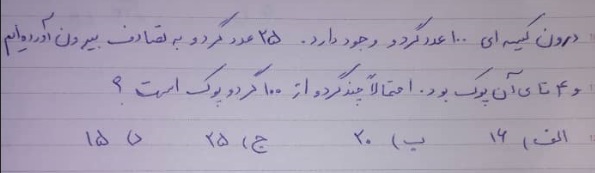 درون کیسه ای ۱۰۰ عدد گردو وجود دارد. ۲۵ عدد گردو به تصادف بیرون آورده‌ایم
و ۴ تای آن پوک بود. احتمالاً چند گردو از ۱۰۰ گردو پوک است؟
الف) ۱۶ ب) ۲۰ ج) ۲۵ د) ۱۵